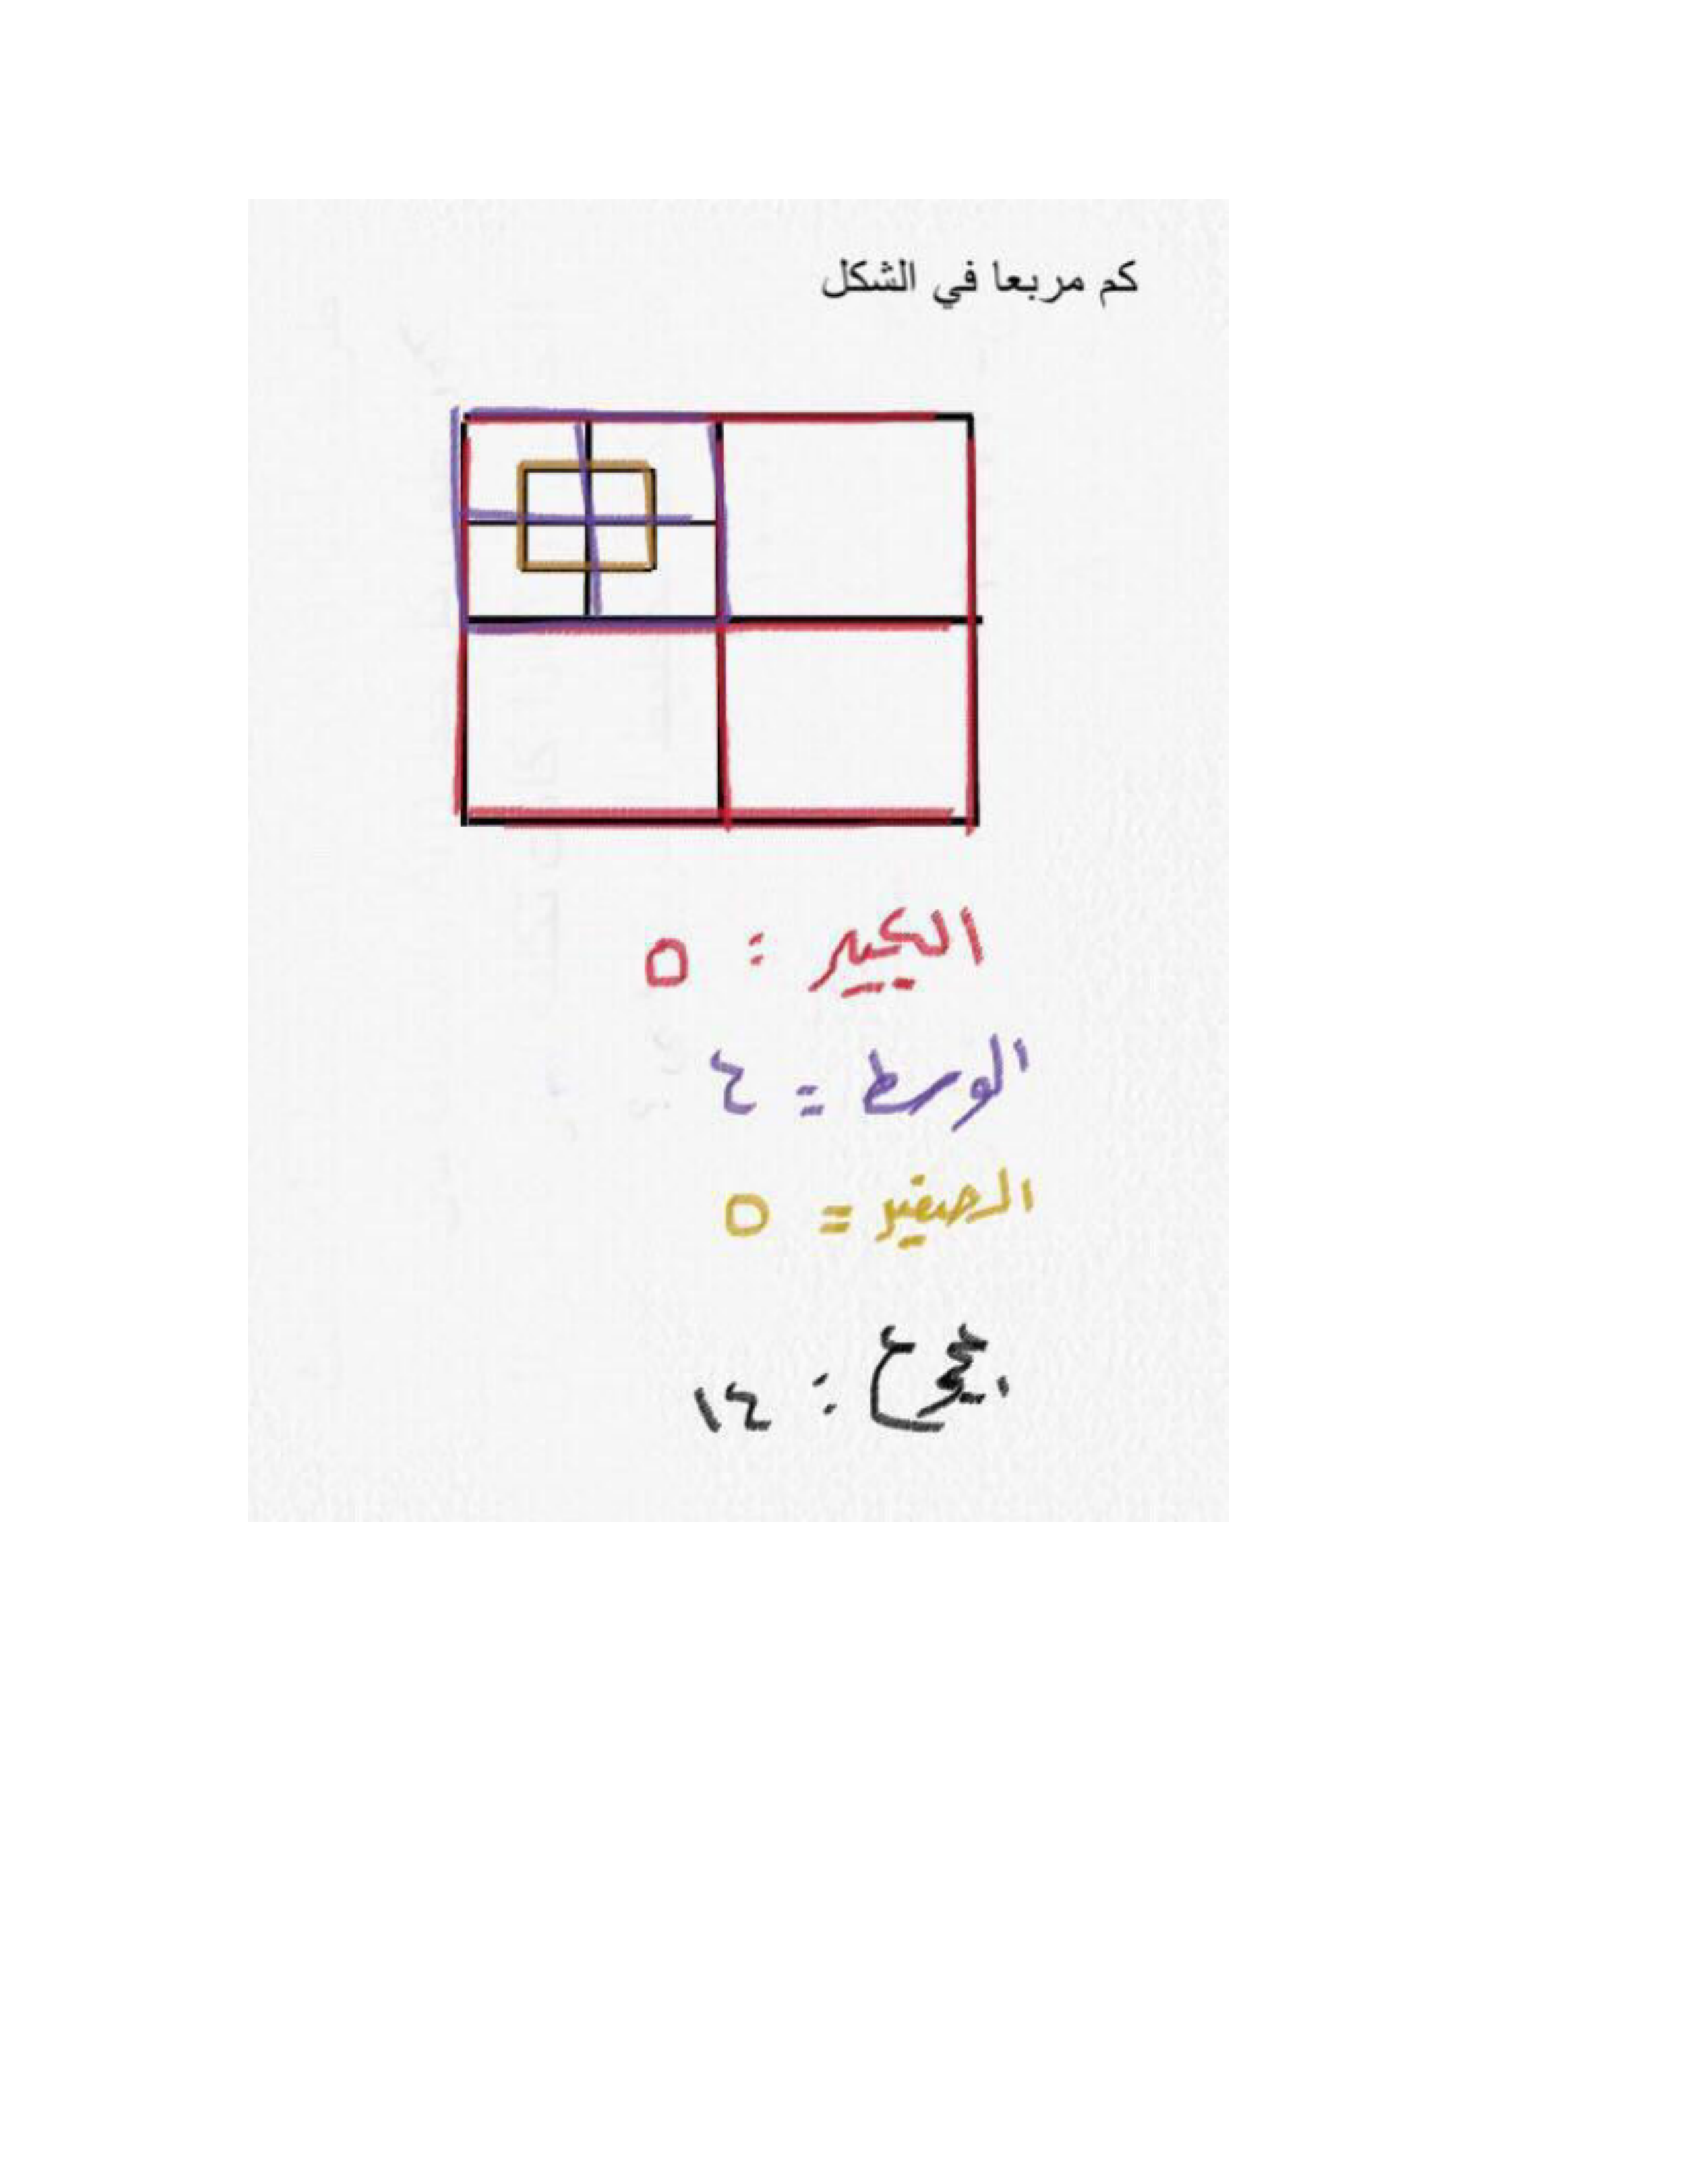 كم مربعا في الشكل
الكبير : ٥
الوسط = ٤
الصغير = ٥
المجموع : ١٤